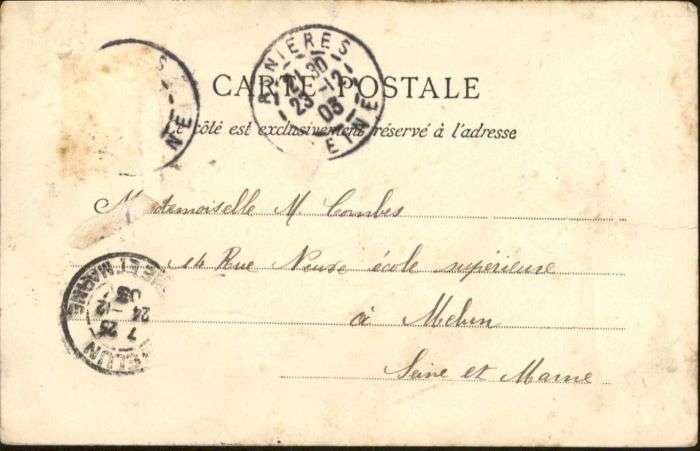 CARTE POSTALE
Ce côté est exclusivement réservé à l'adresse
ASNIERES
30
23 -12
03
SEINE
Mademoiselle M. Combes
14 Rue Neuve école supérieure
à Melun
Seine et Marne
MELUN
7 25
24 -12
03
SEINE ET MARNE